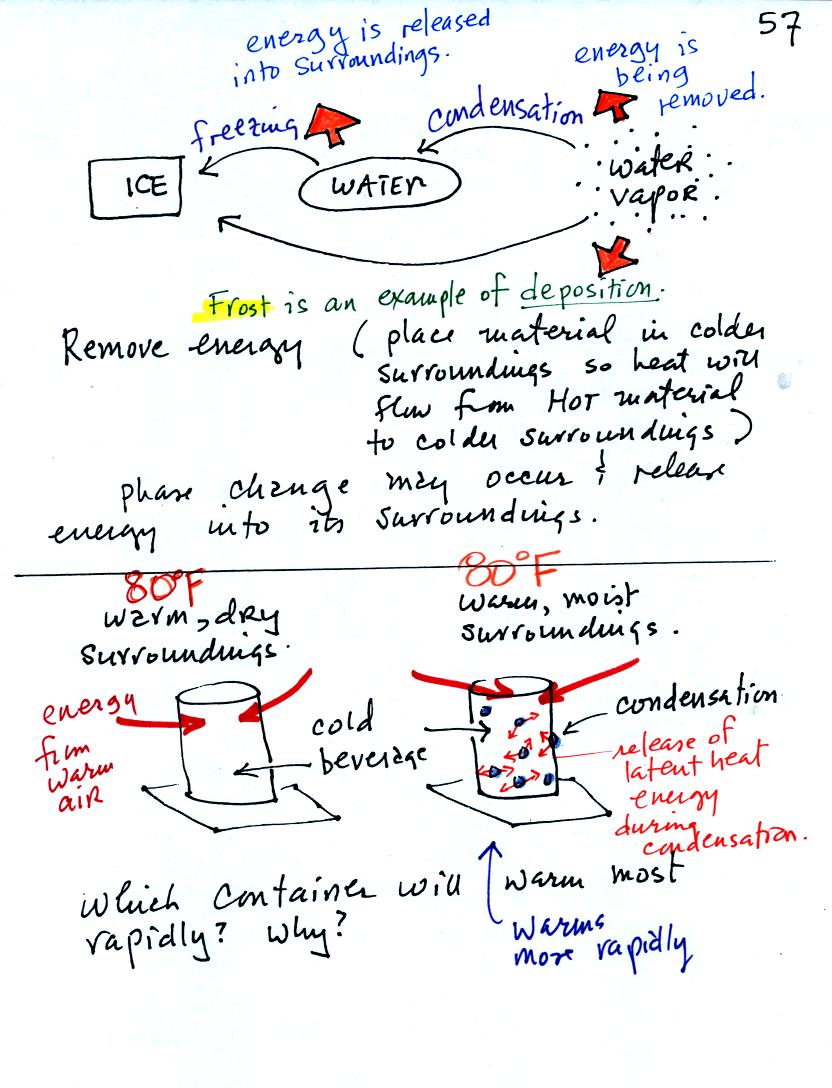 57
energy is released
into surroundings.
energy is
being
removed.
freezing
condensation
ICE
WATER
water
vapor
Frost is an example of deposition.
Remove energy ( place material in colder
surroundings so heat will
flow from HOT material
to colder surroundings )
phase change may occur & release
energy into its surroundings.
80°F
warm, dry
surroundings.
80°F
warm, moist
surroundings.
energy
from
warm
air
cold
beverage
condensation
release of
latent heat
energy
during
condensation.
which container will warm most
rapidly? why?
warms
more rapidly